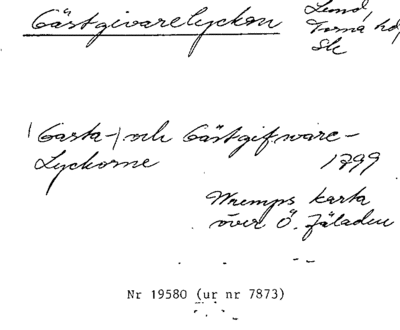 Gästgivarelyckan
Lund,
Torna hd,
Sk
(Gasta-) och Gästgifware-
Lyckorne 1799
Wremps karta
över Ö. Fäladen
Nr 19580 (ur nr 7873)